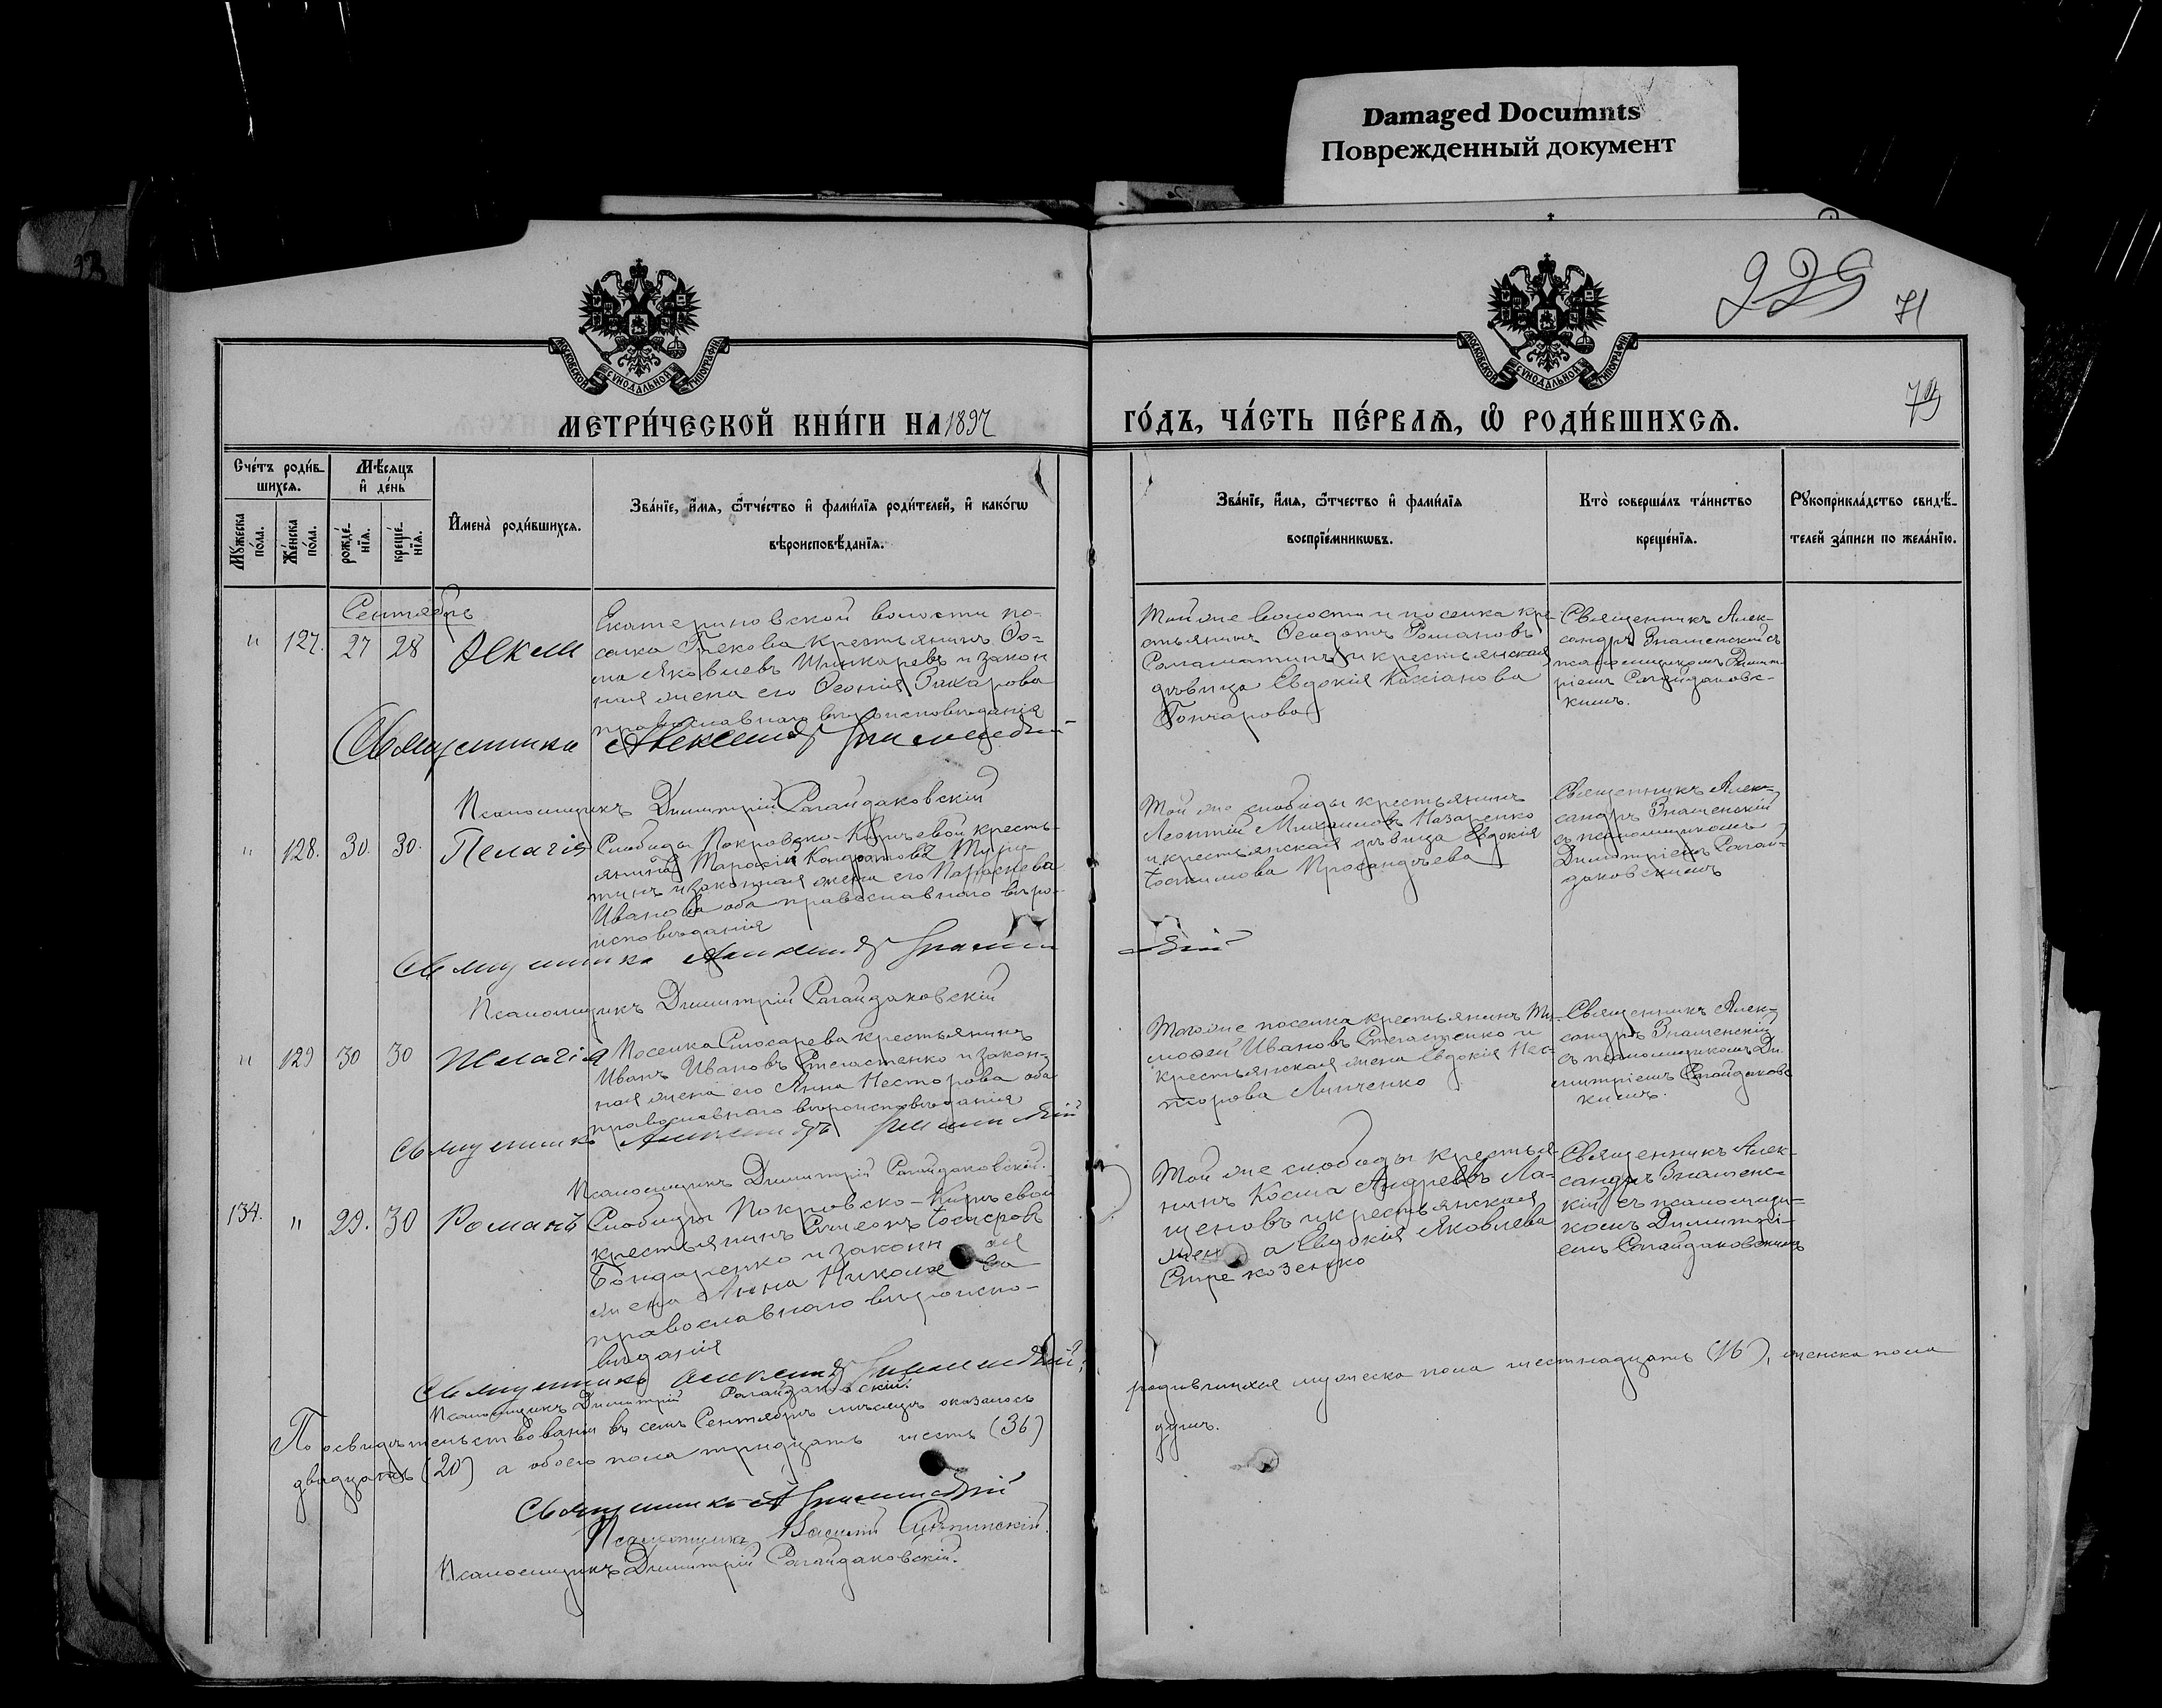 Damaged Documnts
Поврежденный документ
229
71
МОСКОВСКОЙ СѴНОДАЛЬНОЙ ТИПОГРАФІИ
МОСКОВСКОЙ СѴНОДАЛЬНОЙ ТИПОГРАФІИ
МЕТРИ́ЧЕСКОЙ КНИ́ГИ НА 1897
ГО́ДЪ, ЧА́СТЬ ПЕ́РВАѦ, Ѿ РОДИ́ВШИХСѦ.
Сче́тъ роди́в-
шихсѧ.
Мѣ́сѧцъ
и҆ де́нь
Мꙋ́жеска по́ла.
Же́нска по́ла.
рожде́-
нїѧ.
креще́-
нїѧ.
И҆мена̀ роди́вшихсѧ.
Зва́нїе, и҆́мѧ, ѻ҆́тчество и҆ фами́лїѧ роди́телей, и҆ како́гѡ
вѣроисповѣ́данїѧ.
Зва́нїе, и҆́мѧ, ѻ҆́тчество и҆ фами́лїѧ
воспрїе́мникѡвъ.
Кто̀ соверша́лъ та́инство
креще́нїѧ.
Рꙋкоприкла́дство свидѣ́-
телей за́писи по жела́нїю.
Сентябрь
" 127. 27 28
Екатериновской волости по-
селка Грекова крестьянинъ Фо-
ма Яковлевъ Шинкаревъ и закон
ная жена его Феонія Захарова
православнаго вѣроисповѣданія
Той же волости и поселка кре-
стьянинъ Феодотъ Романовъ
Саламатинъ и крестьянская
дѣвица Евдокія Касіанова
Гончарова
Священникъ Алек-
сандръ Знаменскій съ
псаломщикомъ Димит-
ріемъ Сагайдаковс-
кимъ.
Священникъ Александръ Знаменскій
Псаломщикъ Димитрій Сагайдаковскій
" 128. 30. 30. Пелагія
Слободы Покровско-Кирѣевой кресть-
янинъ Тарасій Кондратовъ
тинъ и законная жена его Параскева
Иванова оба православнаго вѣро-
исповѣданія
Той же слободы крестьянинъ
Леонтій Михаиловъ Назаренко
и крестьянская дѣвица Евдокія
Іоакимова
Священникъ Алек-
сандръ Знаменскій
съ псаломщикомъ
Димитріемъ Сагай-
даковскимъ
Священникъ Александръ Знаменскій
Псаломщикъ Димитрій Сагайдаковскій
" 129 30 30 Пелагія
Поселка Слюсарева крестьянинъ
Иванъ Ивановъ и закон-
ная жена его Анна Несторова оба
православнаго вѣроисповѣданія
Того же поселка крестьянинъ Ти-
мофей Ивановъ и
крестьянская жена Евдокія Нес-
торова Линченко
Священникъ Алек-
сандръ Знаменскій
съ псаломщикомъ Ди-
митріемъ Сагайдаковс
кимъ.
Священникъ Александръ Знаменскій
Псаломщикъ Димитрій Сагайдаковскій.
134. " 29. 30 Романъ
Слободы Покровско-Кирѣевой
крестьянинъ Симеонъ
Бондаренко и законн ая
жена Анна Николае ва
православнаго вѣроиспо-
вѣданія
Той же слободы крестья-
нинъ Косма Андреевъ Ла-
щеновъ и крестьянская
жен а Евдокія Яковлева
Стрекозенко
Священникъ Алек-
сандръ Знаменс-
кій съ псаломщи-
комъ Димитрі-
емъ Сагайдаковскимъ
Священникъ Александръ Знаменскій
Псаломщикъ Димитрій Сагайдаковскій.
По освидѣтельствованіи въ семъ Сентябрѣ мѣсяцѣ оказалось
родившихся мужеска пола шестнадцать (16), женска пола
двадцать (20) а обоего пола тридцать шесть (36)
душъ.
Священникъ А Знаменскій
Псаломщикъ Василій
Псаломщикъ Димитрій Сагайдаковскій.